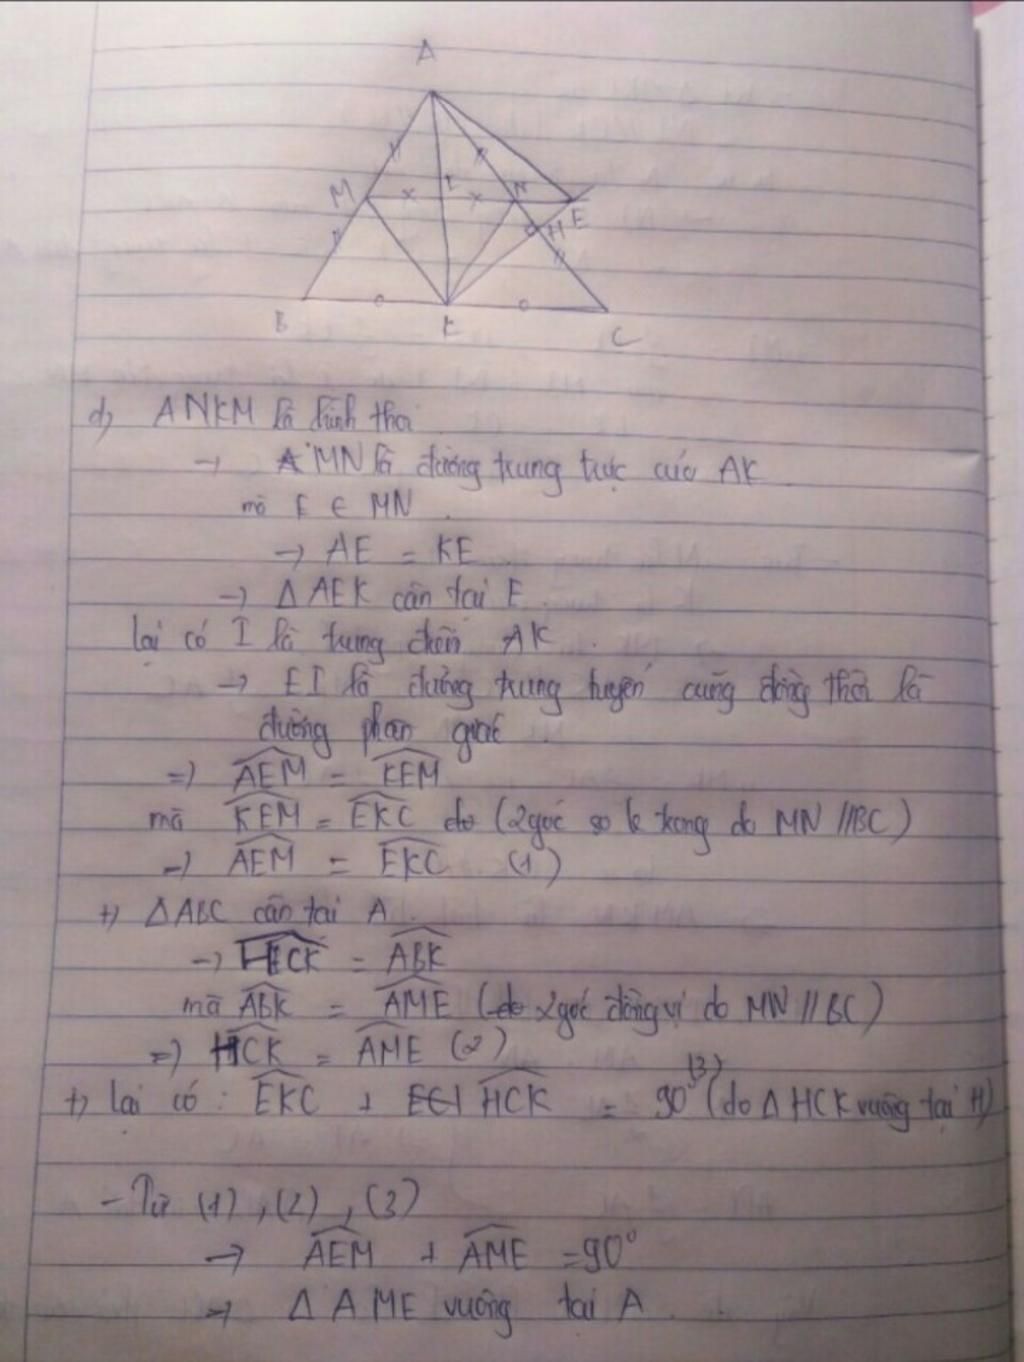 A
M I N E
H
B K C
d) ANKM là hình thoi
→ MN là đường trung trực của AK
mà E ∈ MN
→ AE = KE
→ Δ AEK cân tại E
lại có I là trung điểm AK
→ EI là đường trung tuyến cũng đồng thời là
đường phân giác
=) AEM = KEM
mà KEM = EKC do (2 góc so le trong do MN // BC)
→ AEM = EKC (1)
+) Δ ABC cân tại A
→ HCK = ABK
mà ABK = AME (do 2 góc đồng vị do MN // BC)
=) HCK = AME (2)
+) lại có : EKC + HCK = 90° (3) (do Δ HCK vuông tại H)
- Từ (1), (2), (3)
→ AEM + AME = 90°
→ Δ AME vuông tại A